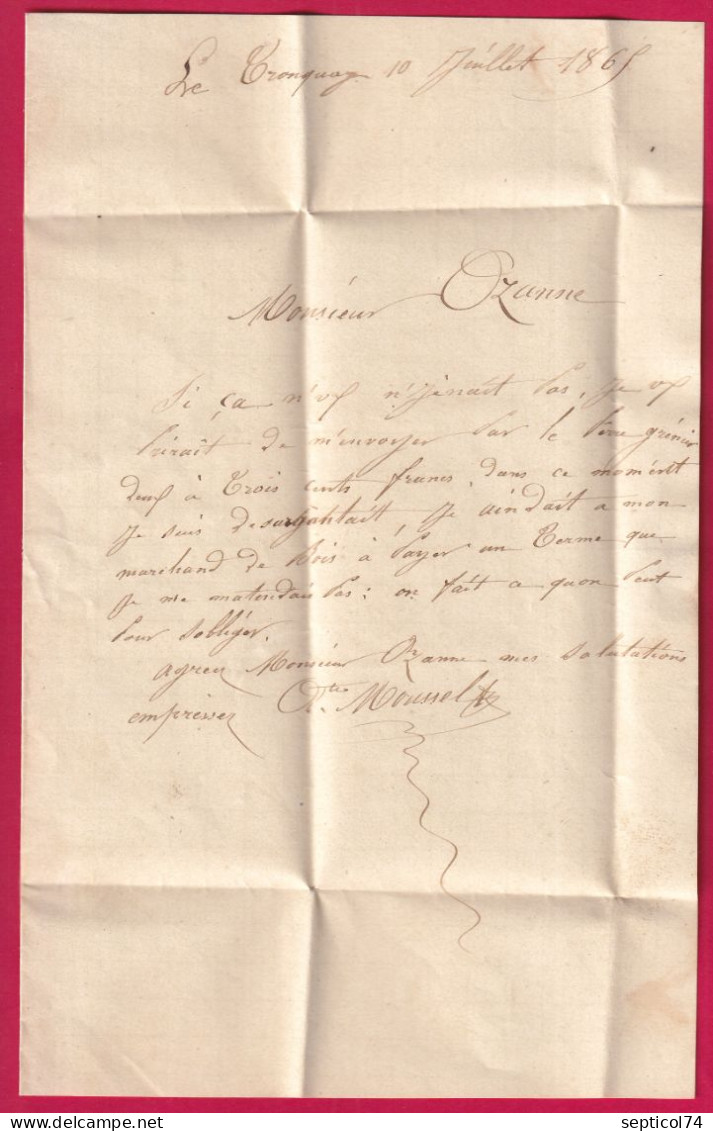 Le Tronquay 10 Juillet 1865
Monsieur Ozanne
Si ça n'vs n'jénait pas, je vs
prirait de m'envoyer par le père grénier
deux à trois cents francs, dans ce moment
je suis desargentait, je aindait a mon
marchand de Bois à payer un terme que
je me matendais pas : on fait a quon peut
pour sobliger.
agreez Monsieur Ozanne mes salutations
empresser Moussel
delcampe.net
septicol74